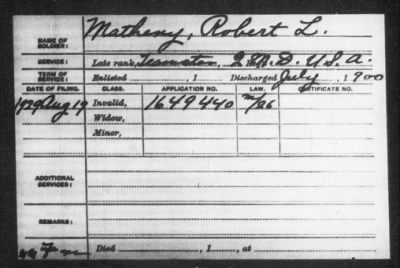 NAME OF SOLDIER: Matheny, Robert L.
SERVICE: Late rank, Teamster, Q.M.D. U.S.A.
TERM OF SERVICE: Enlisted , 1 Discharged July , 1900
DATE OF FILING. CLASS. APPLICATION NO. LAW. CERTIFICATE NO.
1929 Aug 19 Invalid, 1649440
Widow,
Minor,
ADDITIONAL SERVICES:
REMARKS:
Died , 1 , at